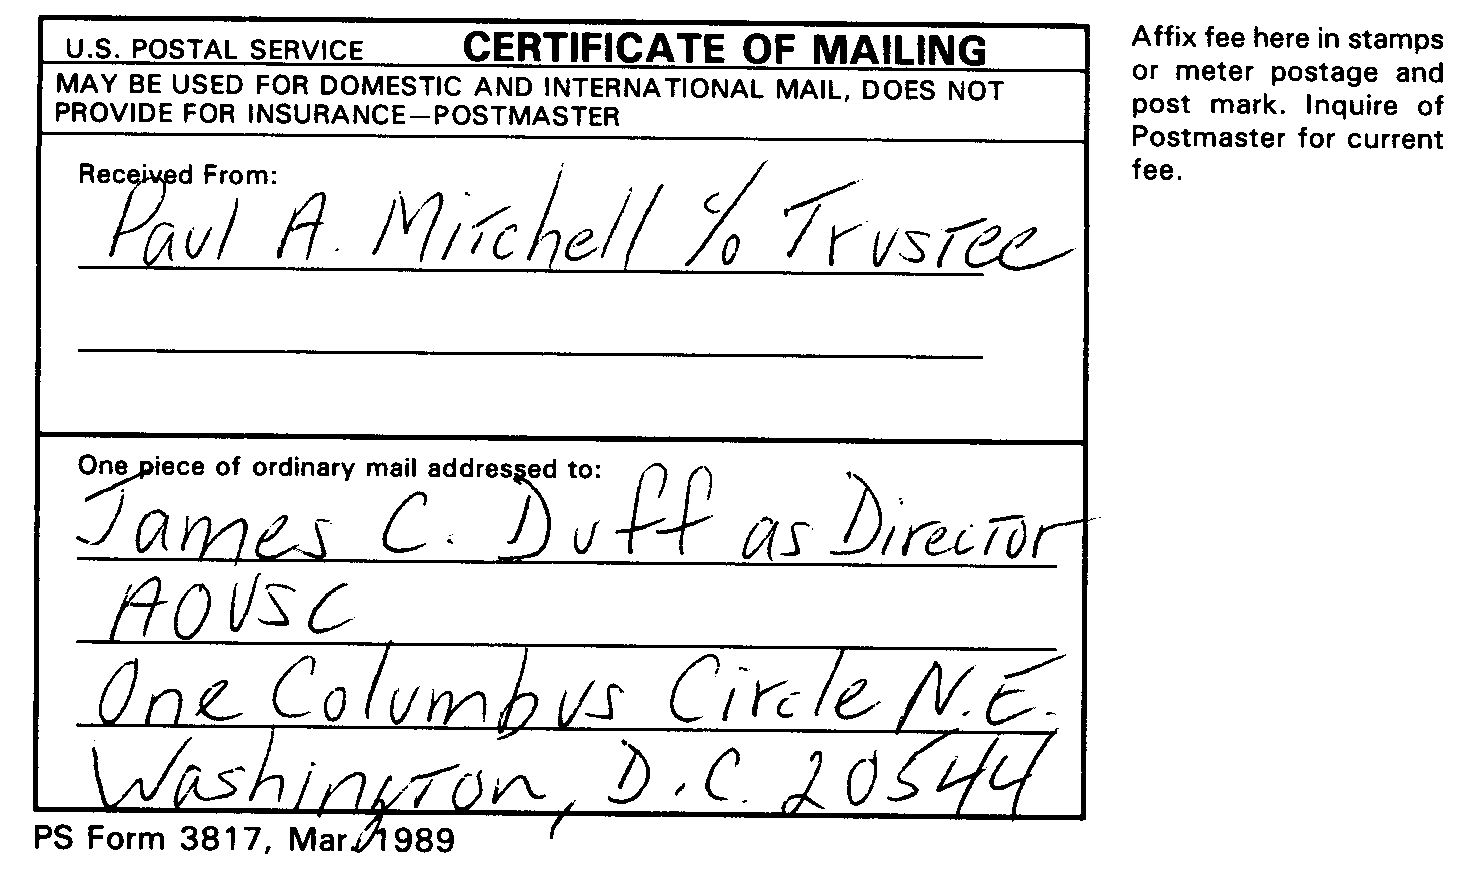 U.S. POSTAL SERVICE CERTIFICATE OF MAILING
MAY BE USED FOR DOMESTIC AND INTERNATIONAL MAIL, DOES NOT
PROVIDE FOR INSURANCE—POSTMASTER
Received From:
Paul A. Mitchell % Trustee
One piece of ordinary mail addressed to:
James C. Duff as Director
AOUSC
One Columbus Circle N.E.
Washington, D.C. 20544
PS Form 3817, Mar. 1989
Affix fee here in stamps
or meter postage and
post mark. Inquire of
Postmaster for current
fee.